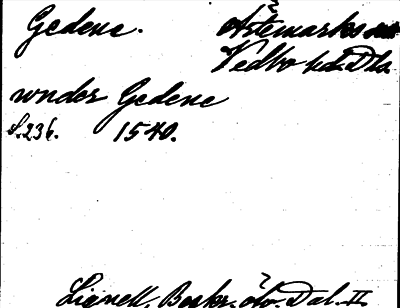 Gedene. Ärtemarks sn
Vedbo hd. Dls.
wnder Gedene
S. 236. 1540.
Lignell, Beskr. öfv. Dal. II.